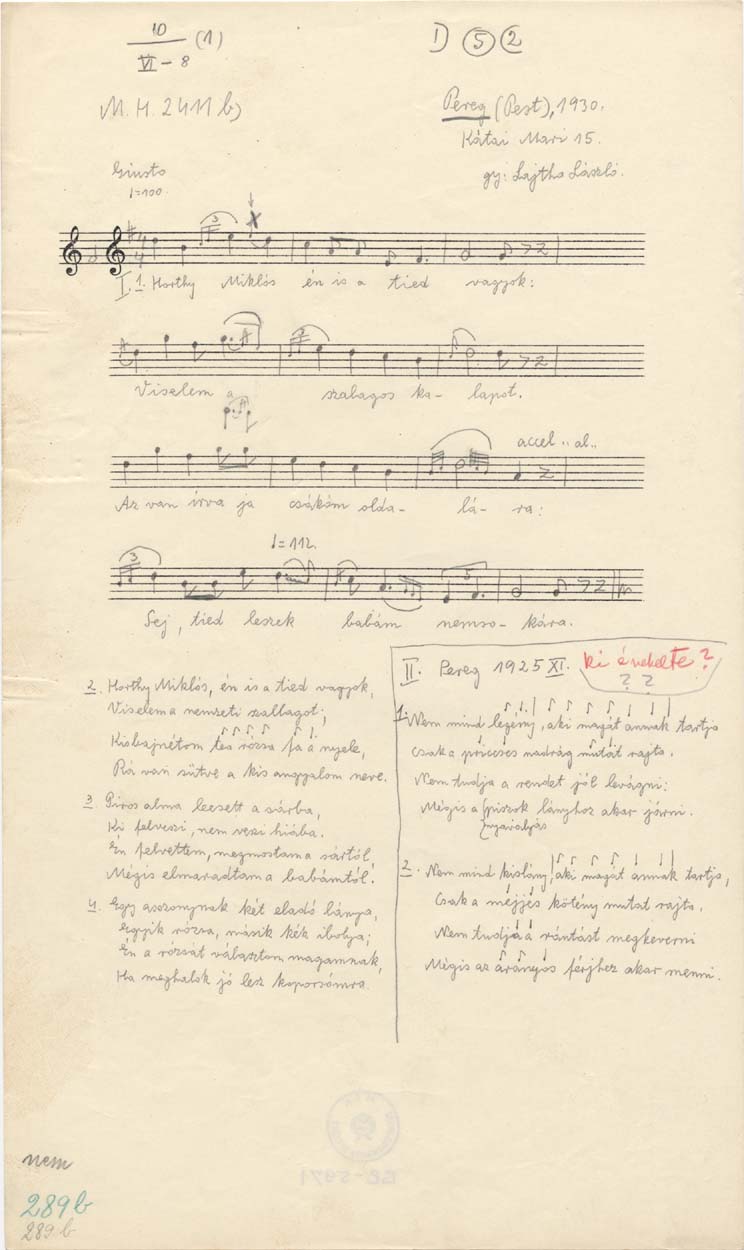 10
VI - 8 (1)
I) 5 2
M. H. 2411 b)
Pereg (Pest), 1930.
Kátai Mari 15.
gy: Lajtha László.
Giusto
♩=100.
3
I. 1. Horthy Miklós én is a tied vagyok:
Viselem a szalagos ka- lapot.
accel.. al..
Az van irva ja csákóm olda- lá- ra:
♩=112.
3
5
Sej, tied leszek babám nemso- kára.
2. Horthy Miklós, én is a tied vagyok,
Viselem a nemzeti szallagot;
Kisbajnétom tea rózsa fa a nyele,
Rá van sütve a kis angyalom neve.
3 Piros alma leesett a sárba,
Ki felveszi, nem veszi hiába.
Én felvettem, megmostam a sártól,
Mégis elmaradtam a babámtól.
4. Egy asszonynak két eladó lánya,
Egyik rózsa, másik kék ibolya;
Én a rózsát választom magamnak,
Ha meghalok jó lesz koporsómra
II. Pereg 1925 XI. ki énekelte?
? ?
1. Nem mind legény, aki magát annak tartja
Csak a priccses nadrág mutat rajta.
Nem tudja a rendet jól levágni:
Mégis a piszok lányhoz akar járni.
nyavalyás
2. Nem mind kislány, aki magát annak tartja,
Csak a méjjes kötény mutat rajta.
Nem tudja a rántást megkeverni
Mégis az arányos férjhez akar menni.
nem
289 b
289 b